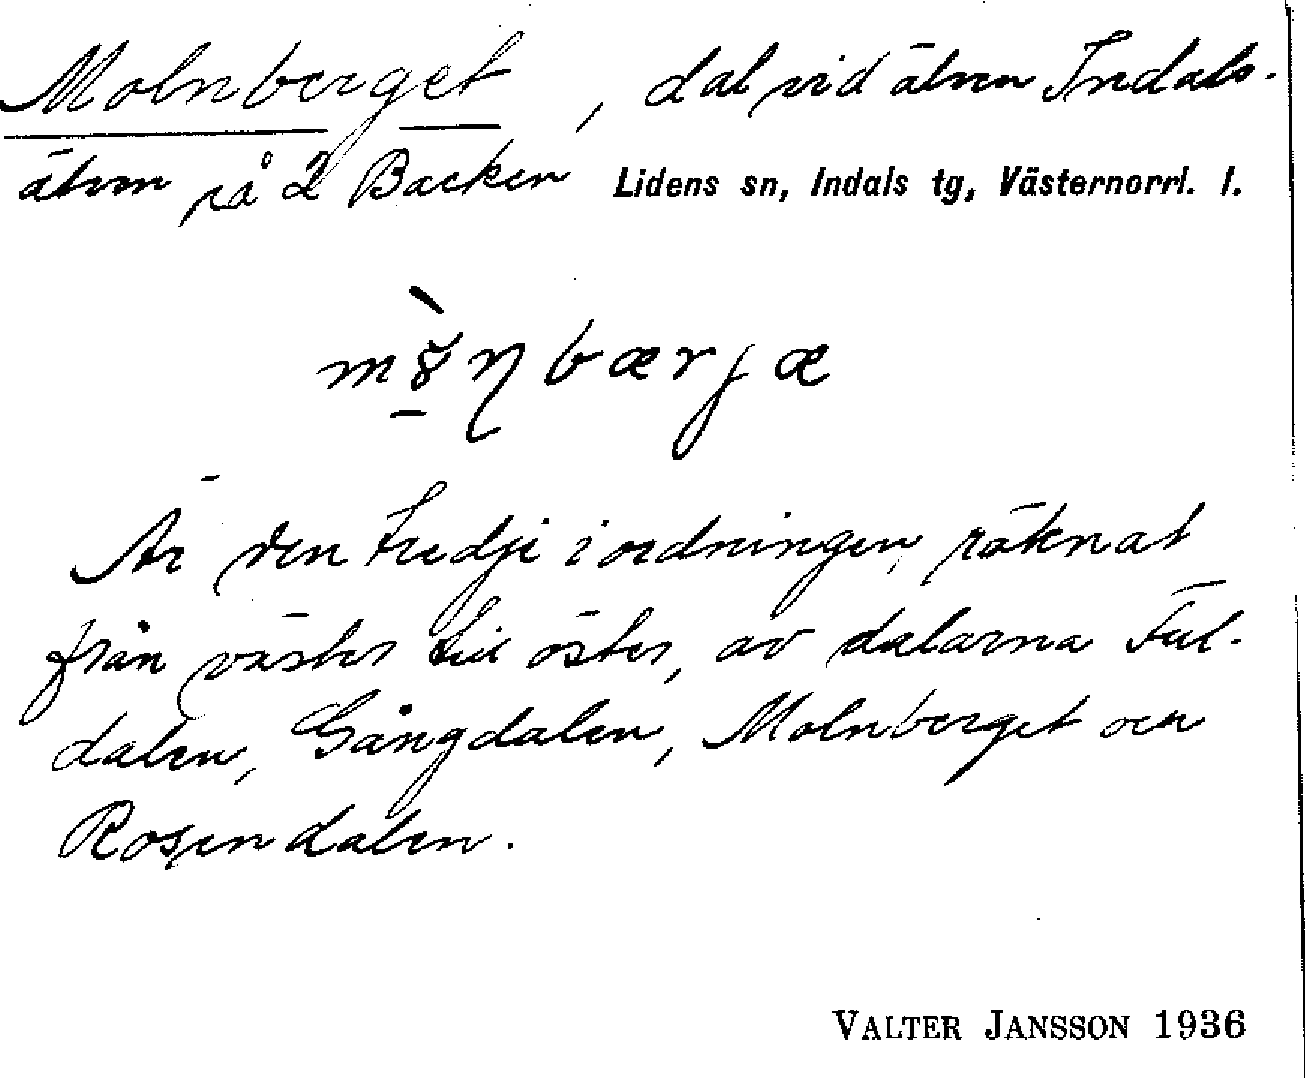 Molnberget, dal vid älven Indals-
älven på 2 Backen Lidens sn, Indals tg, Västernorrl. l.
Är den tredje i ordningen, räknat
från väster till öster, av dalarna Ful-
dalen, Gångdalen, Molnberget och
Rosendalen.
VALTER JANSSON 1936